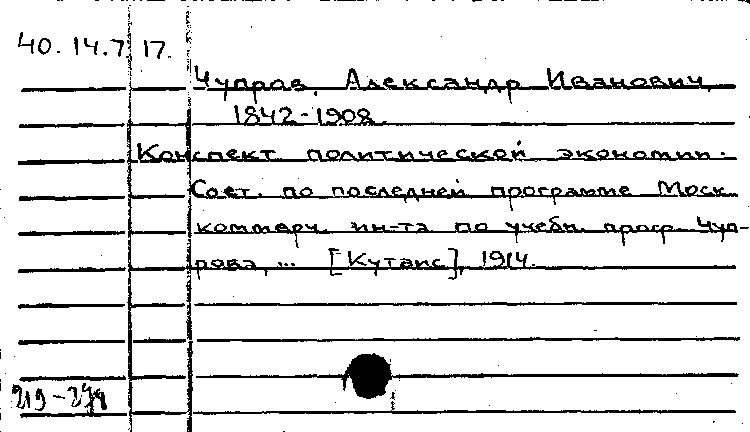 40.14.7.17.
Чупров, Александр Иванович,
1842-1908.
Конспект политической экономии.
Сост. по последней программе Моск.
коммерч. ин-та по учебн. прогр. Чуп-
рова, ... [Кутаис], 1914.